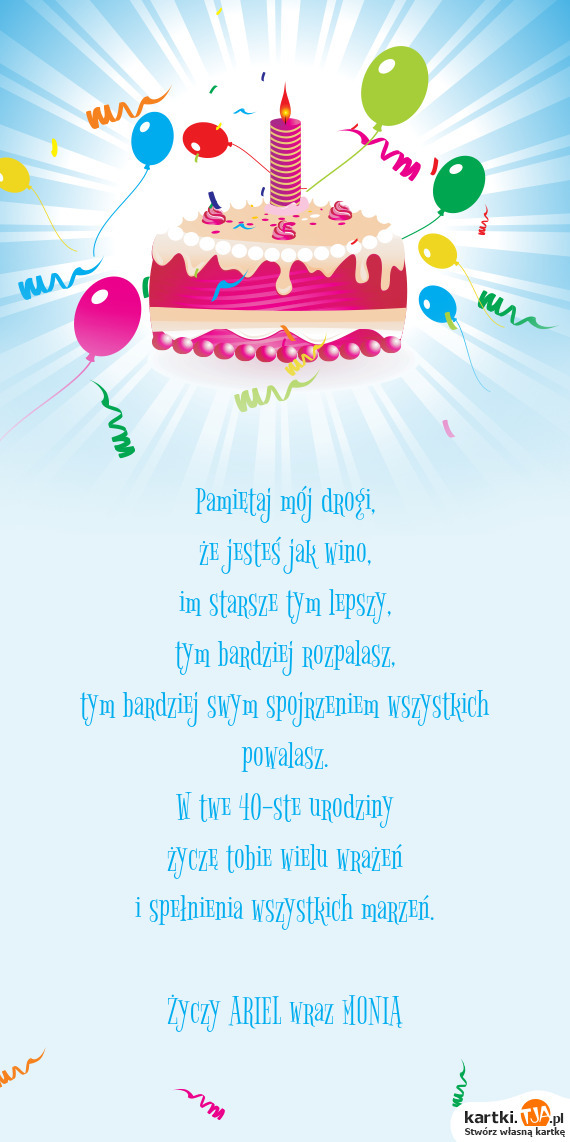 Pamiętaj mój drogi,
że jesteś jak wino,
im starsze tym lepszy,
tym bardziej rozpalasz,
tym bardziej swym spojrzeniem wszystkich
powalasz.
W twe 40-ste urodziny
życzę tobie wielu wrażeń
i spełnienia wszystkich marzeń.
Życzy ARIEL wraz MONIĄ
kartki.TJA.pl
Stwórz własną kartkę